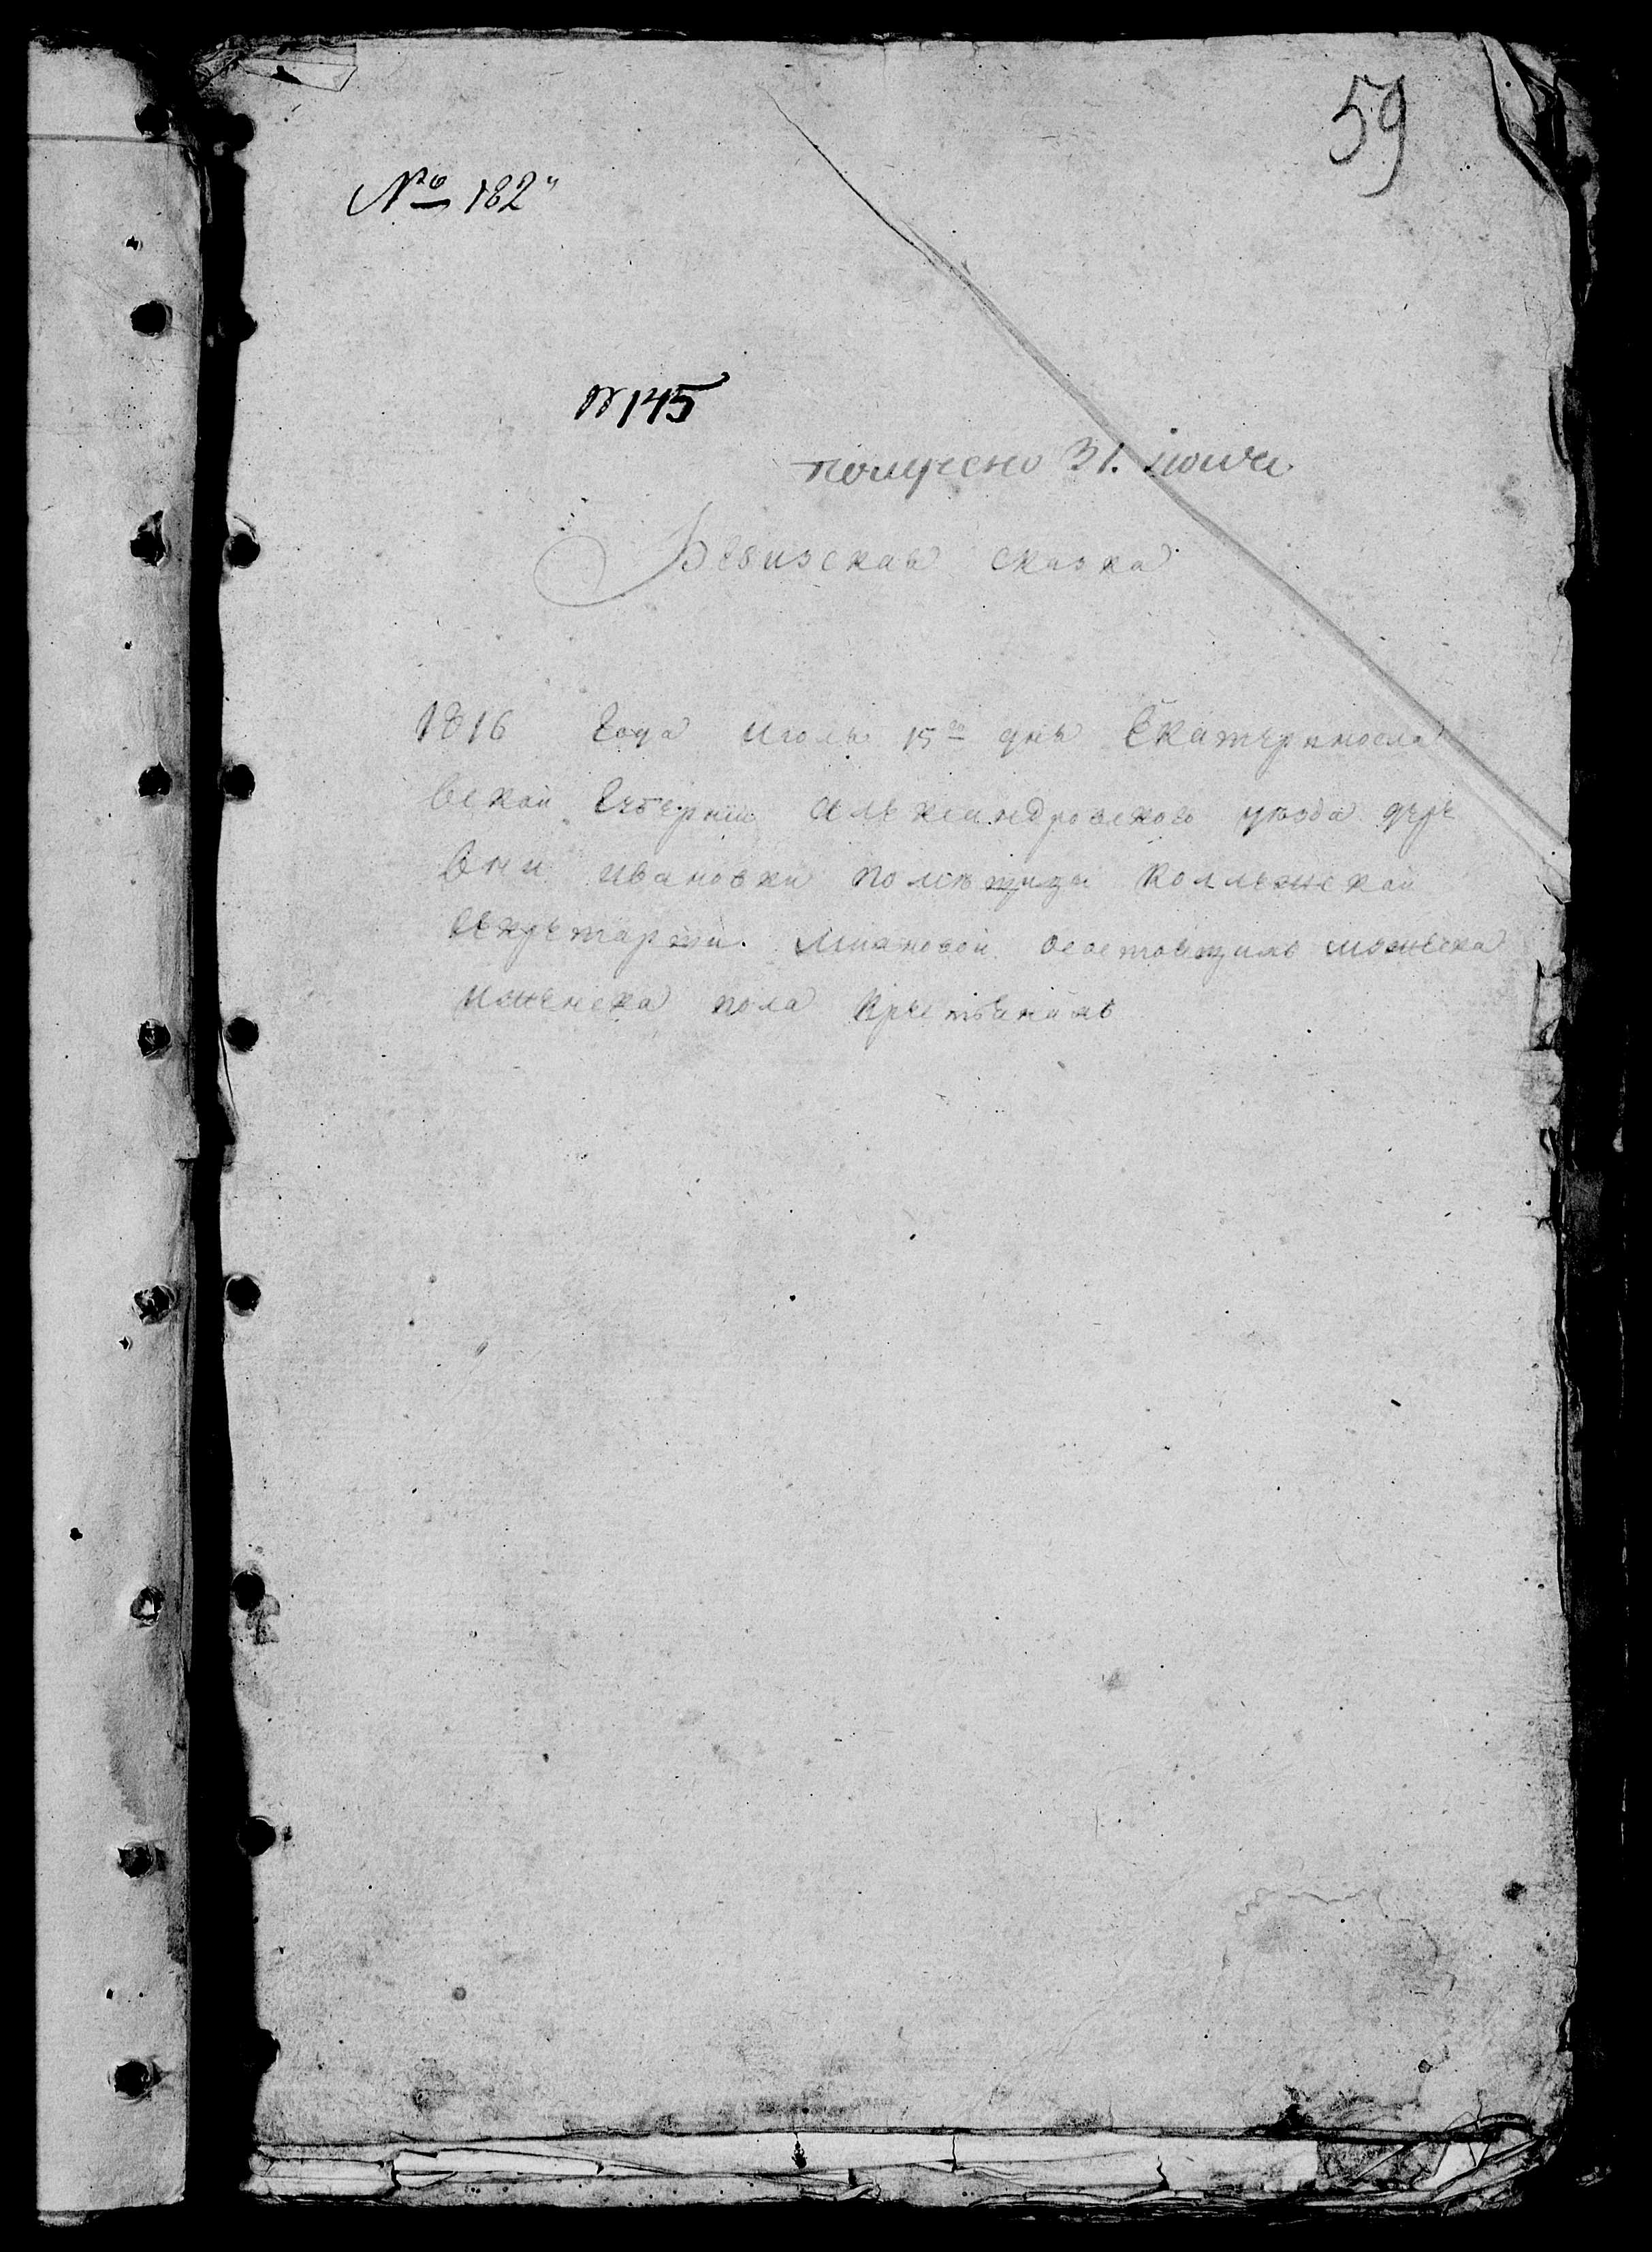 59
№ 182
№ 145
получено 31. июля
Ревизская сказка
1816 года июля 15го дня Екатериносла
вской губернии Александровского уезда дере
вни ивановки помѣщицы коллежской
секретарши. осостоящимъ мужеска
иженска пола крестьянамъ